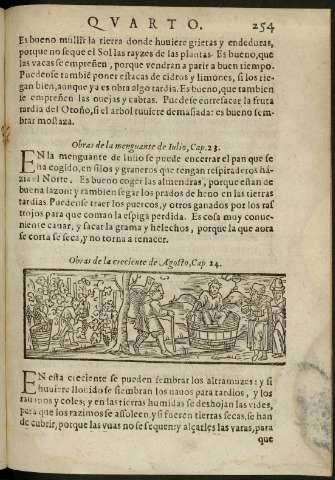 QVARTO. 254
Es bueno mullir la tierra donde huuiere grietas y endeduras,
porque no seque el Sol las rayzes de las plantas. Es bueno, que
las vacas se empreñen, porque vendran a parir a buen tiempo.
Puedense tambiẽ poner estacas de cidros y limones, si los rie-
gan bien, aunque ya es obra algo tardia. Es bueno, que tambien
se empreñen las ouejas y cabras. Puedese entresacar la fruta
tardia del Otoño, si el arbol tuuiere demasiada: es bueno sem-
brar mostaza.
Obras de la menguante de Iulio, Cap. 23.
EN la menguante de Iulio se puede encerrar el pan que se
ha cogido, en silos y graneros que tengan respiraderos há-
zia el Norte. Es bueno coger las almendras, porque estan de
buena sazon: y tambien segar los prados de heno en las tierras
tardias. Puedense traer los puercos, y otros ganados por los ras-
trojos para que coman la espiga perdida. Es cosa muy conue-
niente cauar, y sacar la grama y helechos, porque la que aora
se corta se seca, y no torna a renacer.
Obras de la creciente de Agosto, Cap 24.
EN esta creciente se pueden sembrar los altramuzes: y si
huuiere llouido se siembran los nauos para tardios, y los
rauanos y coles; y en las tierras humidas se deshojan las vides,
para que los razimos se assoleen, y si fueren tierras secas, se han
de cubrir, porque las vuas no se sequen: y alçarles las varas, para
que